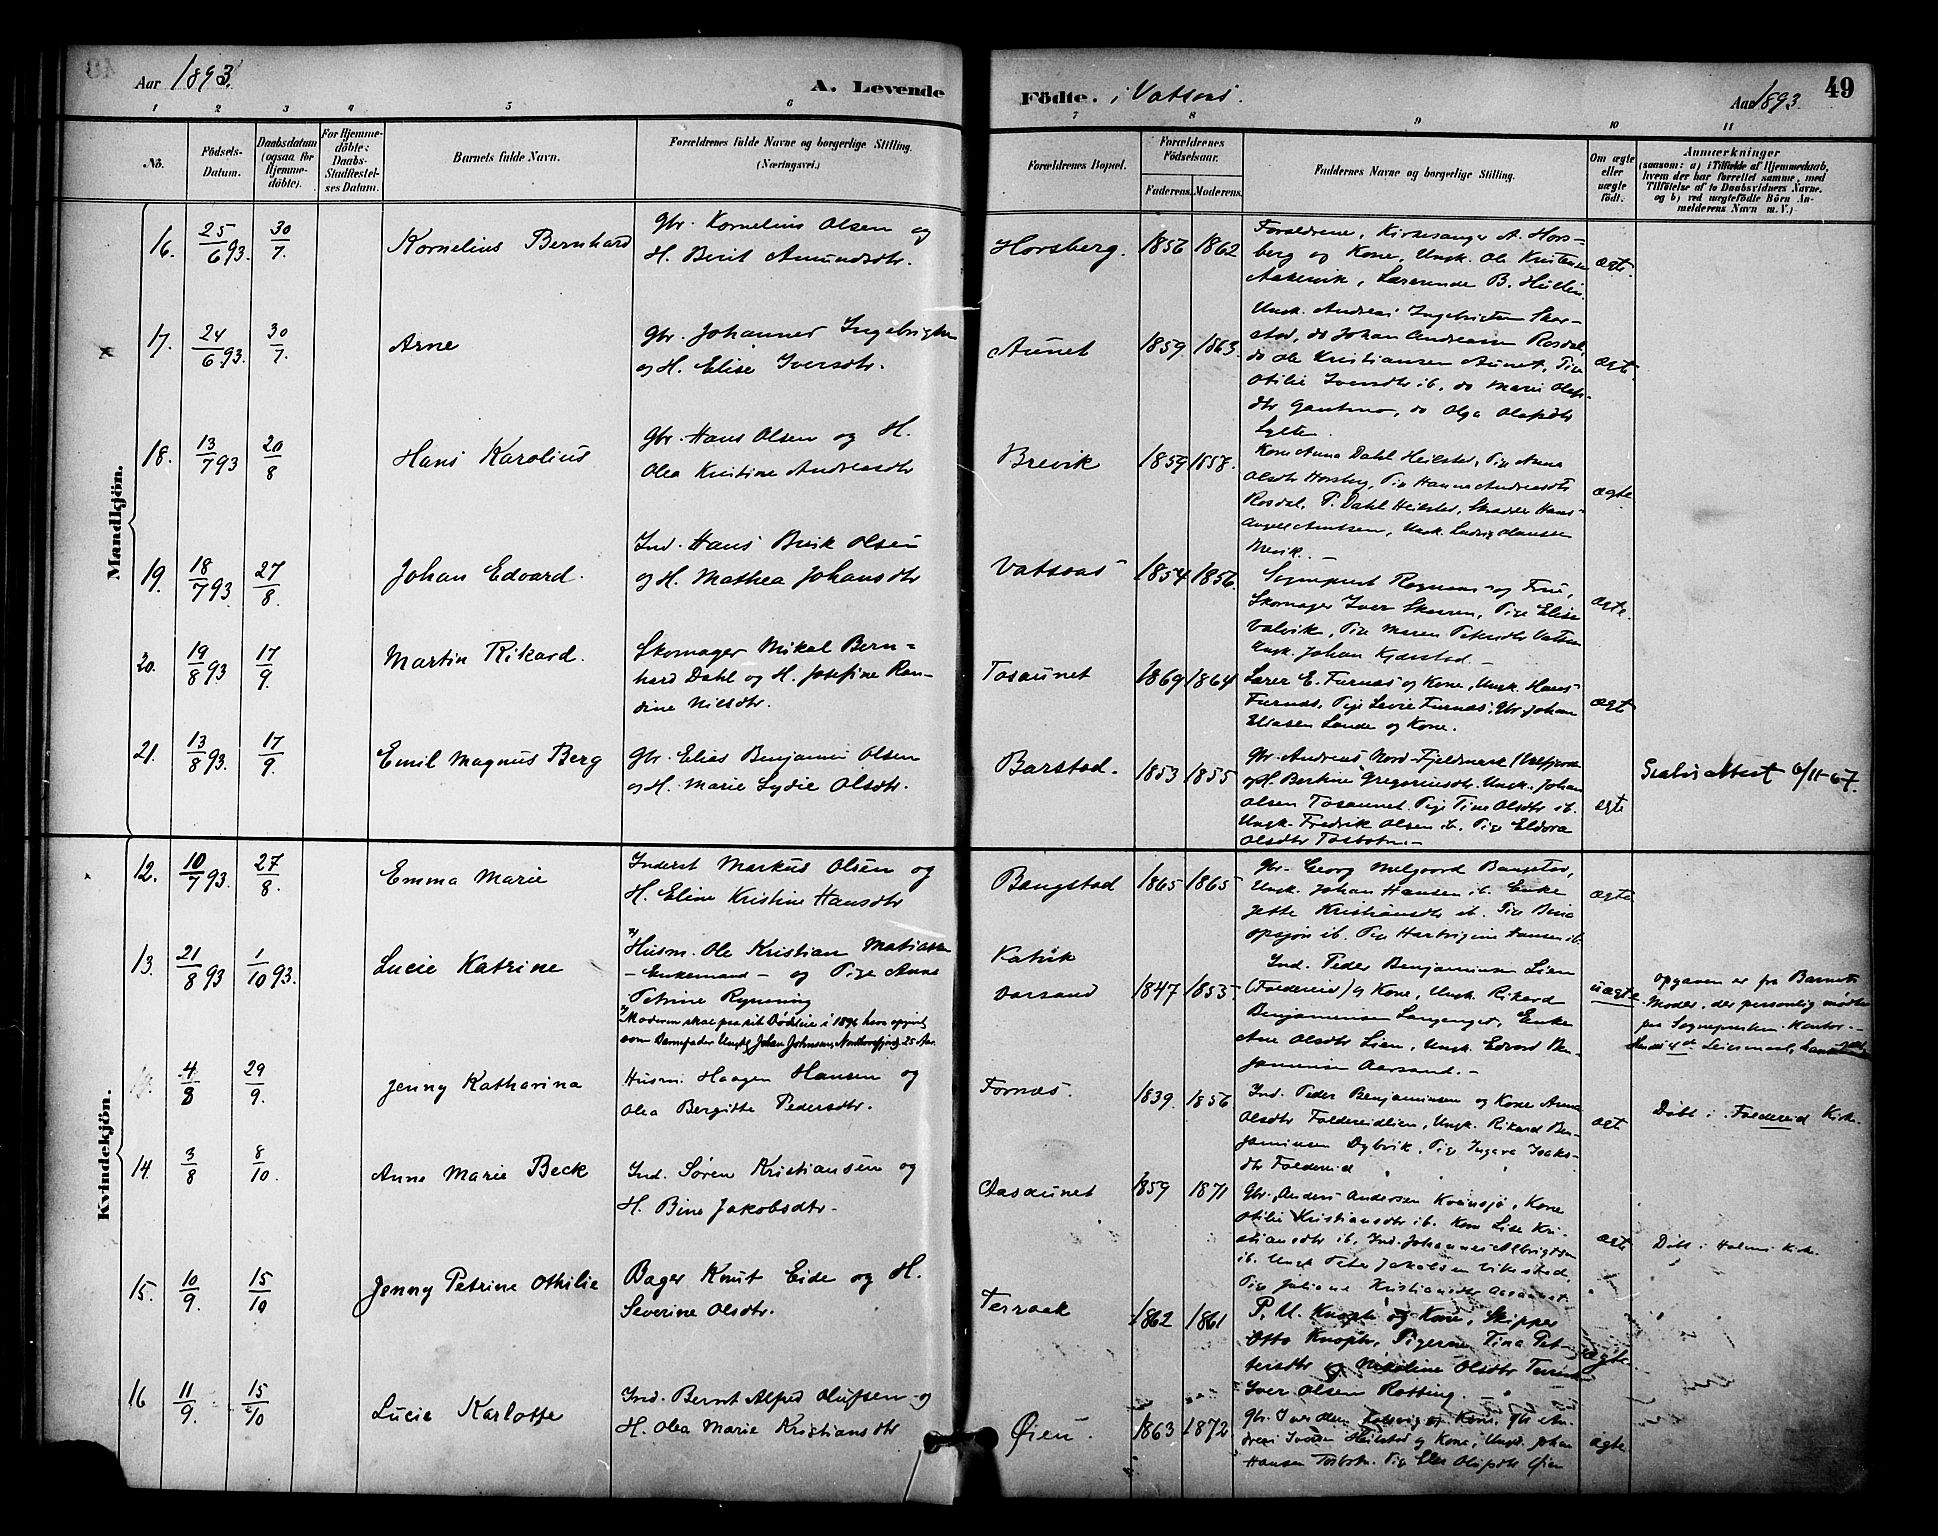 Aar 1893.
A. Levende
Födte. i Vatsaas.
Aar 1893.
49
1 2 3 4 5 6 7 8 9 10 11
No.
Födsels-
Datum.
Daabsdatum
(ogsaa for
Hjemme-
döbte).
For Hjemme-
döbte:
Daabs-
Stadfæstel-
ses Datum.
Barnets fulde Navn.
Forældrenes fulde Navne og borgerlige Stilling.
(Næringsvei.)
Forældrenes Bopæl.
Forældrenes
Födselsaar.
Faderens.
Moderens.
Faddernes Navne og borgerlige Stilling.
Om ægte
eller
uægte
födt.
Anmærkninger
(saasom: a) i Tilfælde af Hjemmedaab,
hvem der har forrettet samme, med
Tilföielse af to Daabsvidners Navne.
og b) ved uægtefödte Börn An-
melderens Navn m. V.)
Mandkjön.
16. 25/6 93. 30/7. Kornelius Bernhard
Gbr. Kornelius Olsen og
H. Berit Amundsdtr.
Horsberg. 1856 1862
Forældrene, Kirkesanger A. Hors-
berg og Kone, Ungk. Ole Kristensen
Aakervik, Lærerinde B.
ægte.
17. 24/6 93. 30/7. Arne
Gbr. Johannes Ingebrigtsen
og H. Elise Iversdtr.
Aunet 1859 1863.
Ungk. Andreas Ingebrigtsen Skar-
stad, do Johan Andreassen Rosdal,
do Ole Kristiansen Aunet, Pige
Otilie Iversdtr ib, do Marie Olafs-
dtr , do Olga Olafsdtr
ægte.
18. 13/7 93 20/8 Hans Karolius
Gbr. Hans Olsen og H.
Olea Kristine Andreasdtr
Brevik 1859 1858.
Kone Anna Dahl Heilstad, Pige Anna
Olsdtr Horsberg, Pige Hanna Andreasdtr
Rosdal, P. Dahl Heilstad, Skrædder Hans
Angell Arntsen, Ungk. Ludvig Hansen
Brevik. —
ægte.
19. 18/7 93. 27/8. Johan Edvard.
Ind. Hans Brik Olsen
og H. Mathea Johansdtr
Vatsaas 1854 1856.
Sogneprest og Frue,
Skomager Iver , Pige Elise
Valvik, Pige Maren Petersdtr Vatsaas
Ungk. Johan Kjærstad. —
ægte.
20. 19/8 93 17/9. Martin Rikard.
Skomager Mikal Bern-
hard Dahl og H. Josefine Ran-
dine Nilsdtr.
Tosaunet 1869 1864
Lærer E. Furnæs og Kone, Ungk. Hans
Furnæs, Pige Furnæs, Gbr Johan
Eliasen Lande og Kone.
ægte
21. 13/8 93. 17/9. Emil Magnus Berg
Gbr. Elias Benjamin Olsen
og H. Marie Lydie Olsdtr.
Barstad. 1853 1855
Gbr. Andreas Nord-Fjeldmark (Velfjorden)
og H. Berkine Gregoriusdtr. Ungk. Johan
Olsen Tosaunet. Pige Tine Olsdtr ib.
Ungk. Fredrik Olsen ib. Pige Eldora
Olsdtr Tosbotn. —
ægte
Gratis Attest 6/11-67.
Kvindekjön.
12. 10/7 93. 27/8. Emma Marie
Inderst Markus Olsen og
H. Eline Kristine Hansdtr
Bangstad 1865 1865
Gbr. Georg Melgaard Bangstad,
Ungk. Johan Hansen ib. Enke
Jette Kristiansdtr ib. Pige
Opsjøn ib. Pige Hartvigine Hansen ib.
ægte
13. 21/8 93 1/10 93. Lucie Katrine
*) Husm. Ole Kristian Matiassen
— Enkemand — og Pige Anne
Petrine
*) Moderen skal paa sit Dødsleie i 1896 have opgivet
som Barnefader Ungk. Johan Johnsen, 25 Aar.
Kalvik
Aarsand 1847 1853
Ind. Peder Benjaminsen Lien
(Foldereid) og Kone, Ungk. Rikard
Benjaminsen , Enke
Ane Olsdtr Lien, Ungk. Edvard Ben-
jaminsen Aarsand. —
uægte
opgaven er fra Barnets
Moder, der personlig mødte
paa Sogneprestens Kontor. —
Hendes 4de Leiermaal,
4/8 29/9. Jenny Katharina
Husm. Haagen Hansen og
Olea Bergitte Pedersdtr.
Fornæs. 1839. 1856
Ind. Peder Benjaminsen og Kone Anna
Olsdtr Foldereidlien, Ungk. Rikard Ben-
jaminsen Dybvik, Pige Ingera Isaks-
dtr Foldereid
ægte
Døbt i Foldereid Kirke.
14. 3/8 8/10. Anne Marie Beck
Ind. Søren Kristiansen og
H. Bine Jakobsdtr.
Aasaunet 1859 1871
Gbr. Anders Andersen Kvansjø, Kone
Otilie Kristiansdtr ib. Kone Lise Kri-
stiansdtr ib. Ind. Johannes Albrigtsen
ib. Ungk Peter Jakobsen Vikestad,
Pige Juliane Kristiansdtr Aasaunet
ægte
Døbt i Holms Kirke
15. 10/9. 15/10 Jenny Petrine Othilie
Bager Knut Eide og H.
Severine Olsdtr.
Terraak 1862 1861
P. M. Knoph og Kone, Skipper
Otto Knoph, Pigerne Tina Pet-
tersdtr og Nikoline Olsdtr Terraak
Iver Olsen Røtting. —
ægte
16 11/9. 15/10 Lucie Karlotte
Ind. Bernt Alfred Olufsen og
H. Olea Marie Kristiansdtr
Øien. 1863 1872
Gbr. Iver Olsen og Kone, Gbr An-
dreas Iversen Heilstad og Kone, Ungk. Johan
Hansen Tosbotn. Pige Olufsdtr Øien
ægte